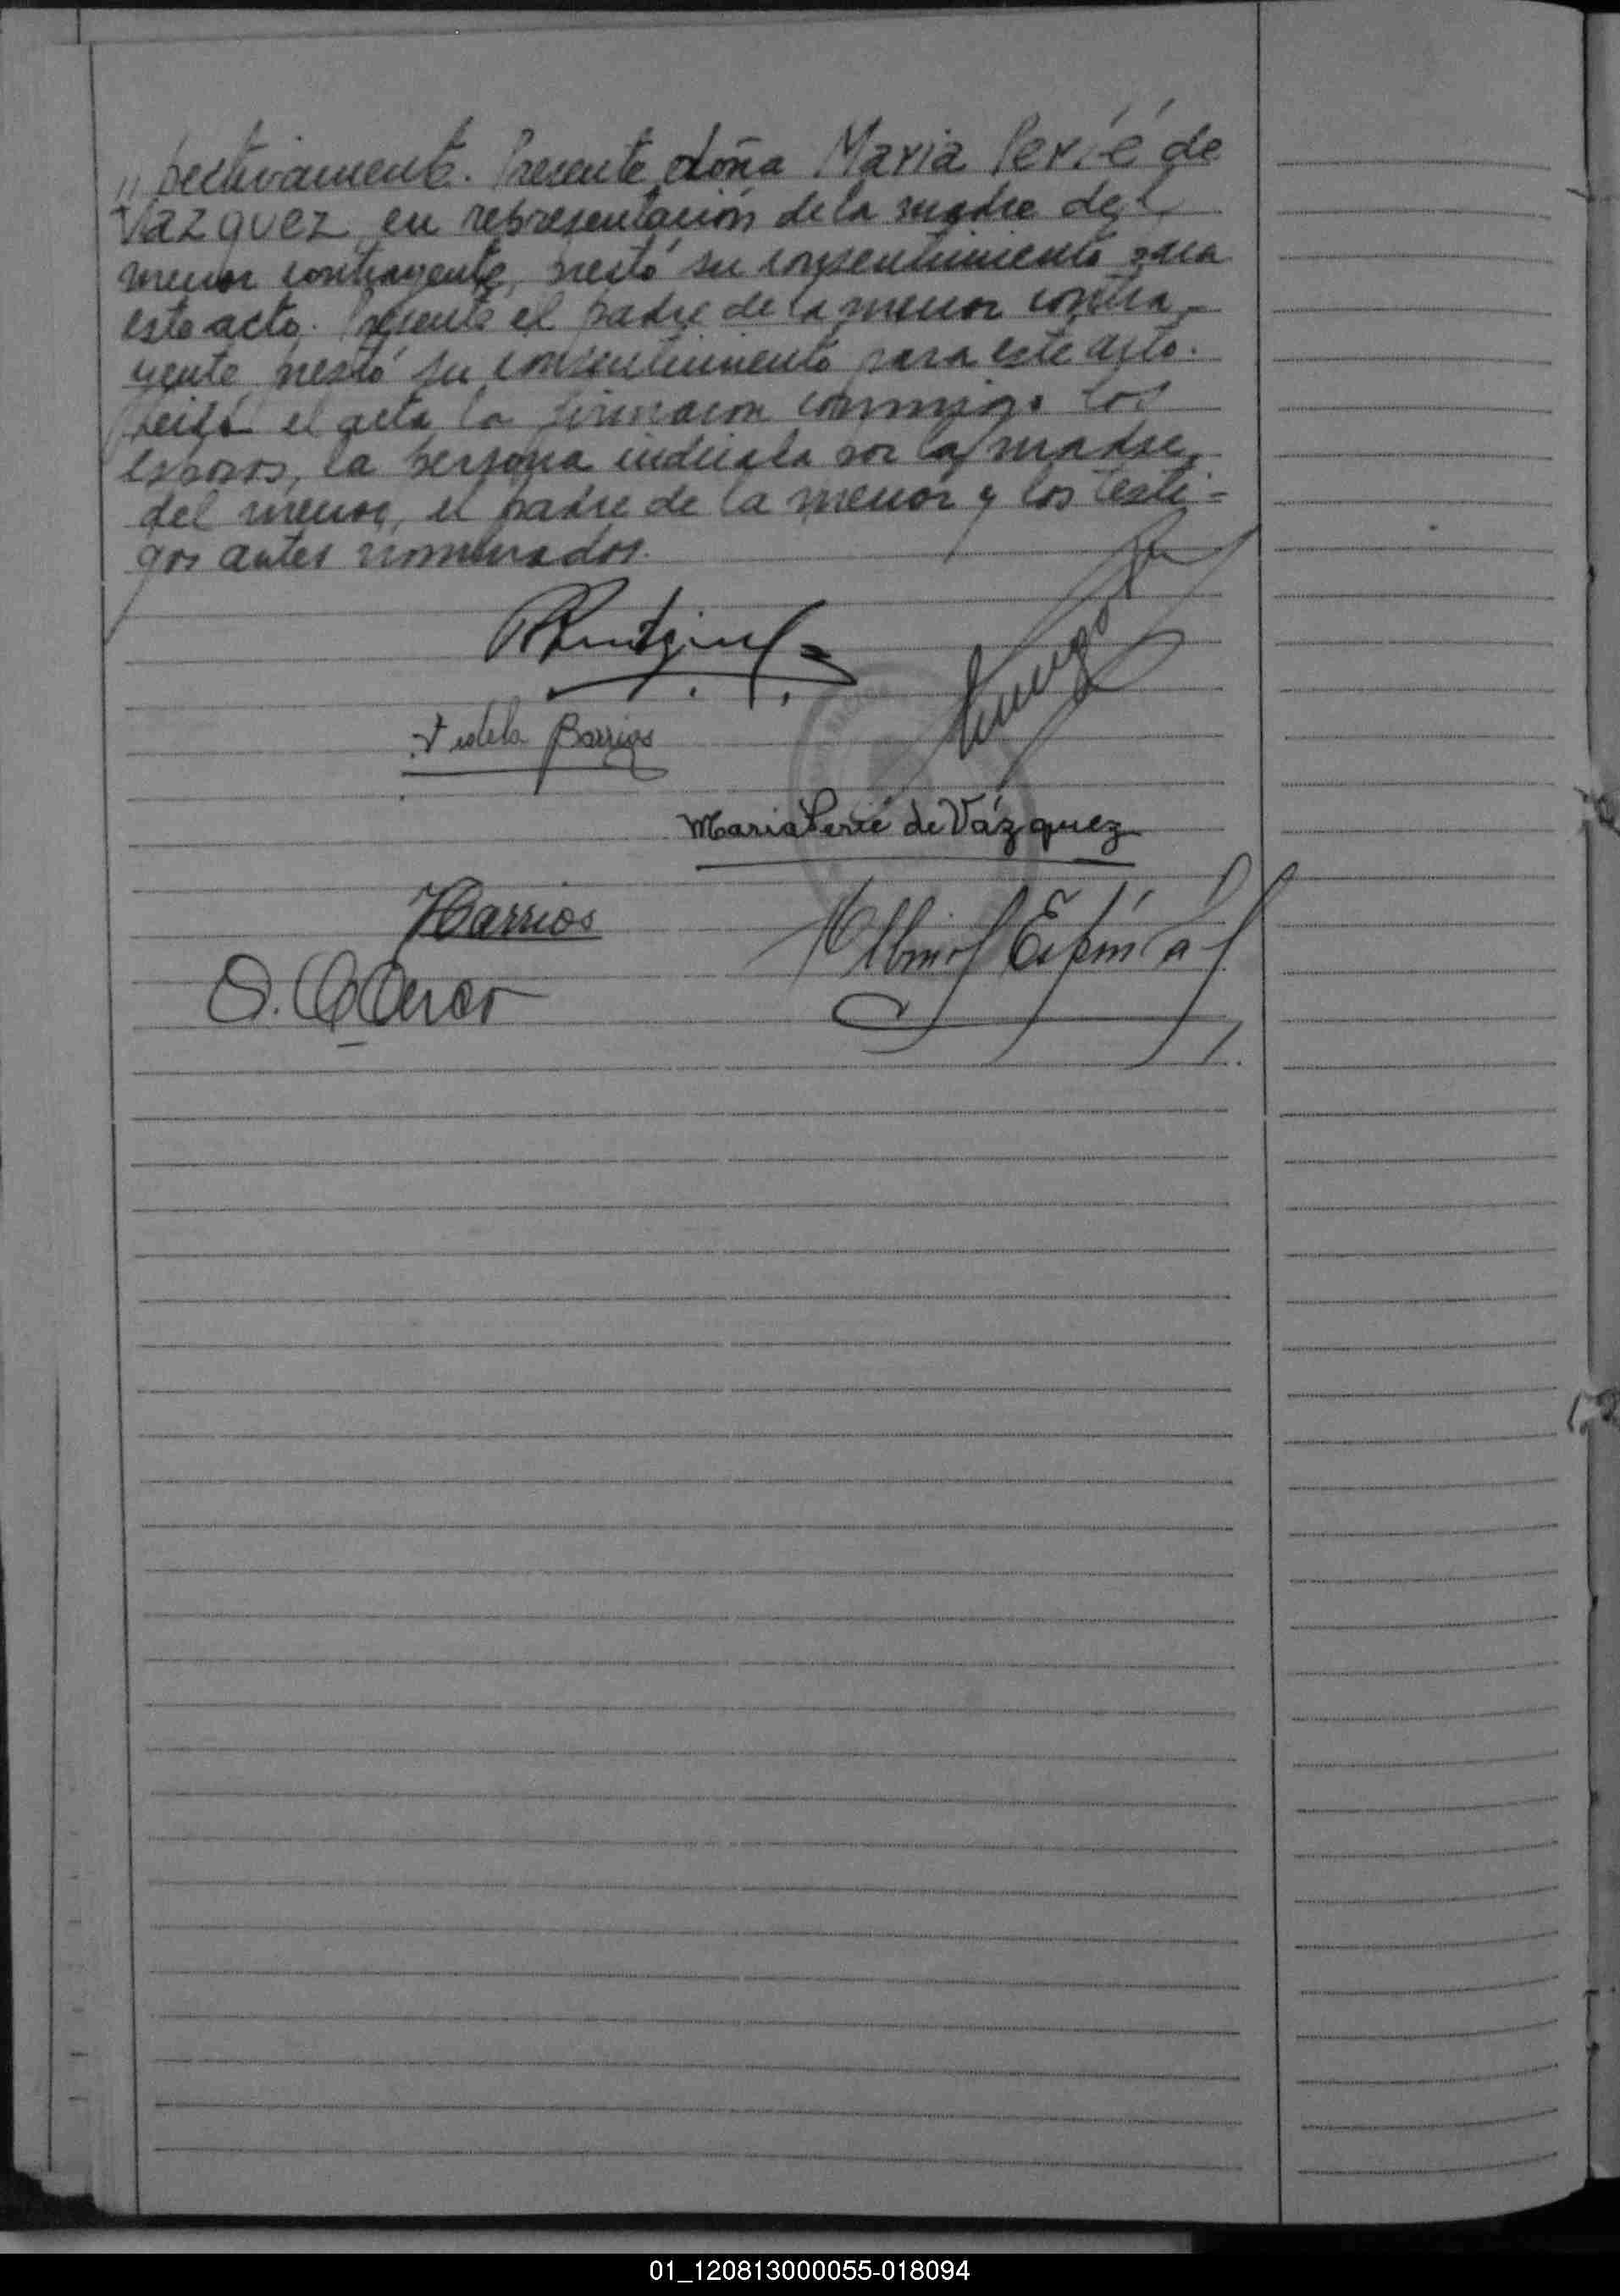 " pectivamente. Presente doña Maria Perié de
Vazquez en representación de la madre del
menor contrayente, prestó su consentimiento para
este acto. Presente el padre de la menor contra-
yente prestó su consentimiento para este acto.
Leida el acta la firmaron conmigo los
esposos, la persona indicada por la madre
del menor, el padre de la menor y los testi=
gos antes nombrados.
Fidela Barrios
Maria Perié de Vázquez
Barrios
Albino Espínola
01_120813000055-018094